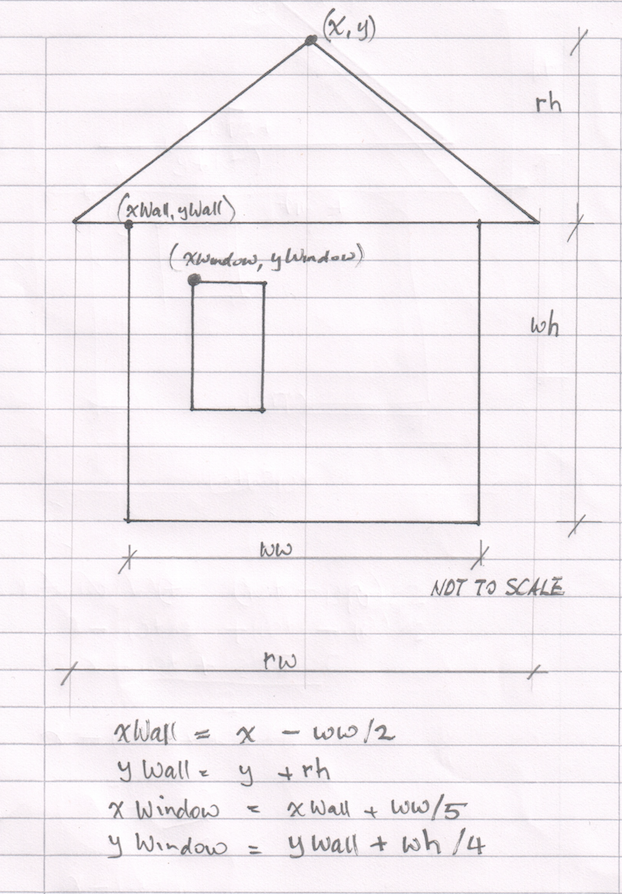 (x, y)
rh
(xWall, yWall)
(xWindow, yWindow)
wh
ww
NOT TO SCALE
rw
xWall = x - ww/2
yWall = y + rh
xWindow = xWall + ww/5
yWindow = yWall + wh/4